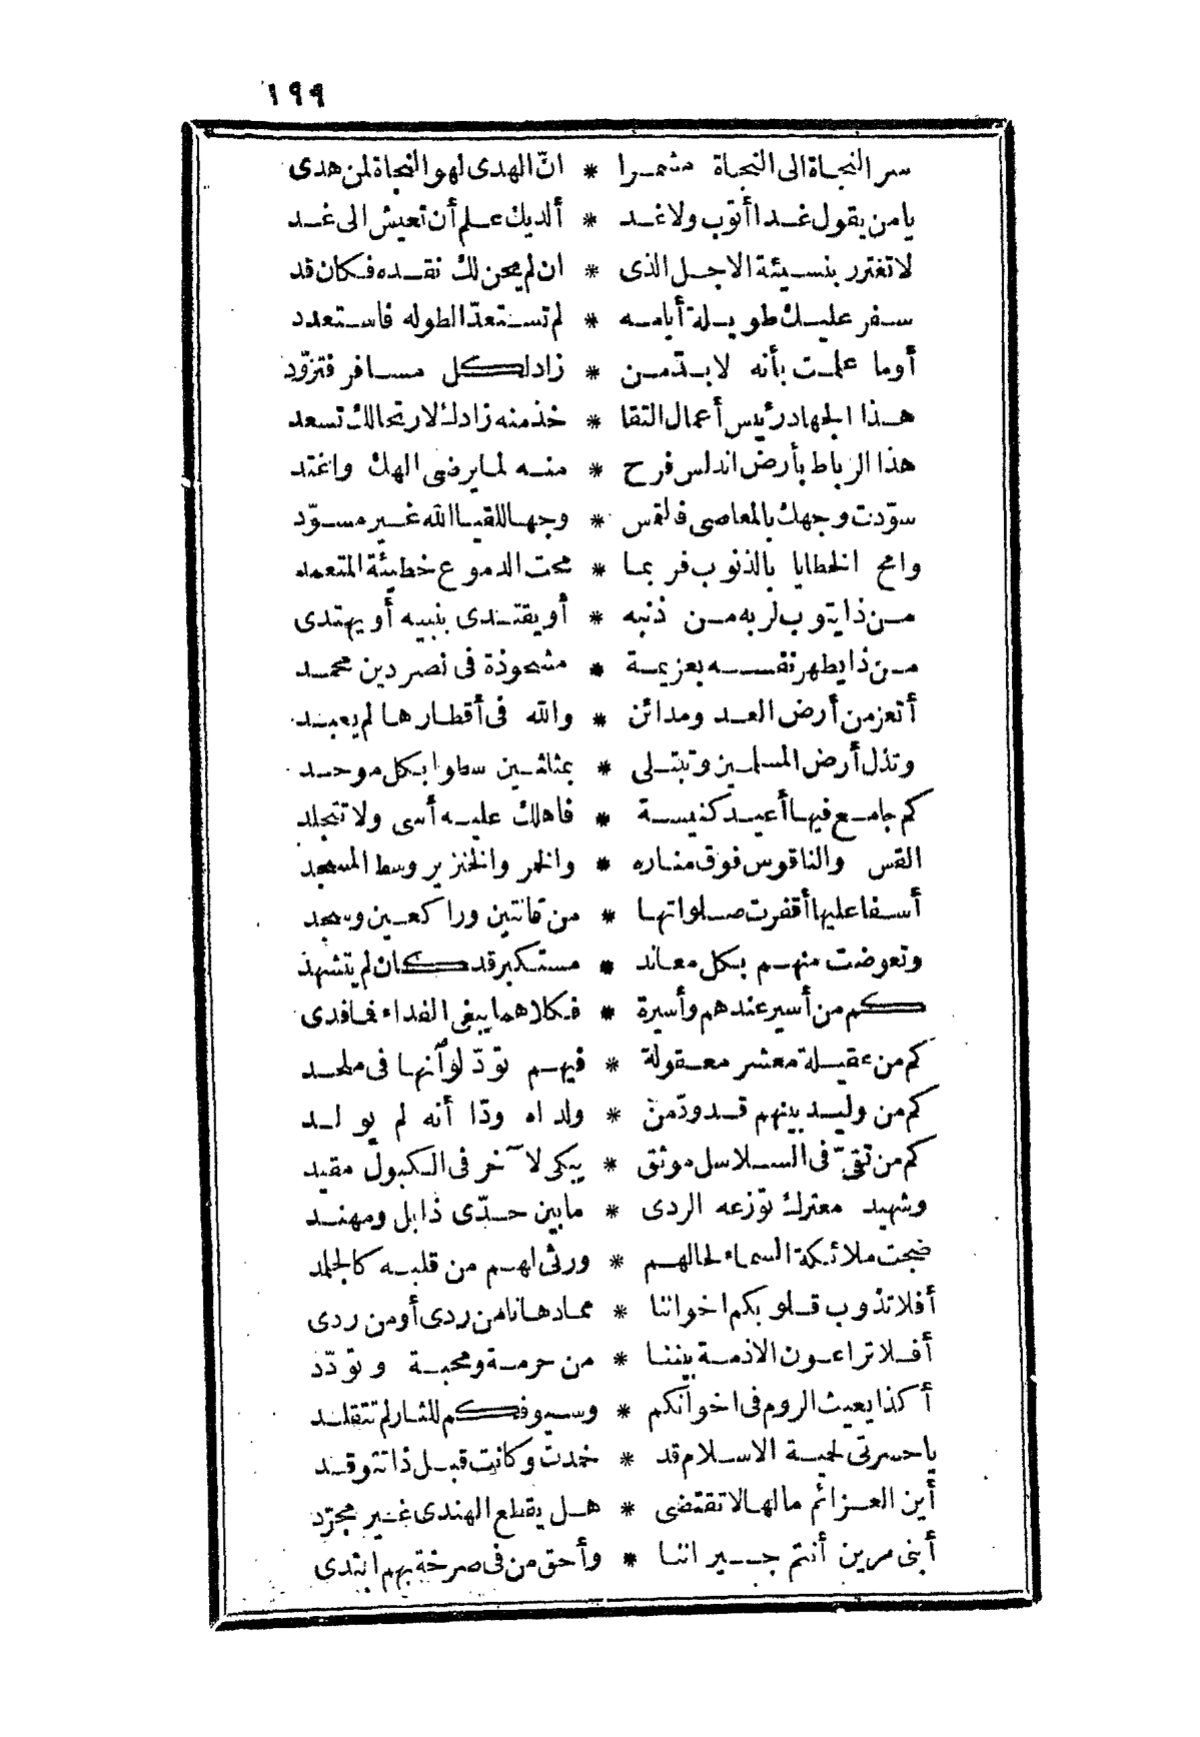 ١٩٩
سر النجاة الى النجاة مشمرا * انّ الهدى لهو النجاة لمن هدى
يا من يقول غدا أتوب ولا غد * ألديك علم أن تعيش الى غد
لا تغترر بنسيئة الاجل الذى * ان لم يحن لك نقده فكان قد
سفر عليك طويلة أيامه * لم تستعدّ لطوله فاستعدد
أوما علمت بأنه لا بدّ من * زاد لكل مسافر فتزوّد
هذا الجهاد رئيس أعمال التقا * خذ منه زادك لارتحالك تسعد
هذا الرباط بأرض اندلس فرح * منه لما يرضى الهك واغتد
سوّدت وجهك بالمعاصى فالتمس * وجها للقيا الله غير مسوّد
وامح الخطايا بالذنوب فربما * محت الدموع خطيئة المتعمد
من ذا يتوب لربه من ذنبه * أو يقتدى بنبيه أو يهتدى
من ذا يطهر نفسه بعزيمة * مشحوذة فى نصر دين محمد
أتعز من أرض العد ومدائن * والله فى أقطارها لم يعبد
وتذل أرض المسلمين وتبتلى * بمثلثين سطوا بكل موحد
كم جامع فيها أعيد كنيسة * فاهلك عليه أسى ولا تتجلد
القس والناقوس فوق مناره * والخمر والخنزير وسط المسجد
أسفا عليها أقفرت صلواتها * من قانتين وراكعين وسجد
وتعوضت منهم بكل معاند * مستكبر قد كان لم يتشهد
كم من أسير عندهم وأسيرة * فكلاهما يبغى الفداء فما فدى
كم من عقيلة معشر معقولة * فيهم تودّ لو أنها فى ملحد
كم من وليد بينهم قد ودّ من * ولداه ودّا أنه لم يولد
كم من تقىّ فى السلاسل موثق * يبكى لآخر فى الكبول مقيد
وشهيد معترك توزعه الردى * ما بين حدّى ذابل ومهند
ضجت ملائكة السماء لحالهم * ورثى لهم من قلبه كالجلمد
أفلا تذوب قلوبكم اخواننا * مما دهانا من ردى أو من ردى
أفلا تراعون الاذمة بيننا * من حرمة ومحبة وتودّد
أكذا يعيث الروم فى اخوانكم * وسيوفكم للثار لم تتقلد
يا حسرتى لحمية الاسلام قد * خمدت وكانت قبل ذا تتوقد
أين العزائم مالها لا تقتضى * هل يقطع الهندى غير مجرّد
أبنى مرين أنتم جيراننا * وأحق من فى صرخة بهم ابتدى